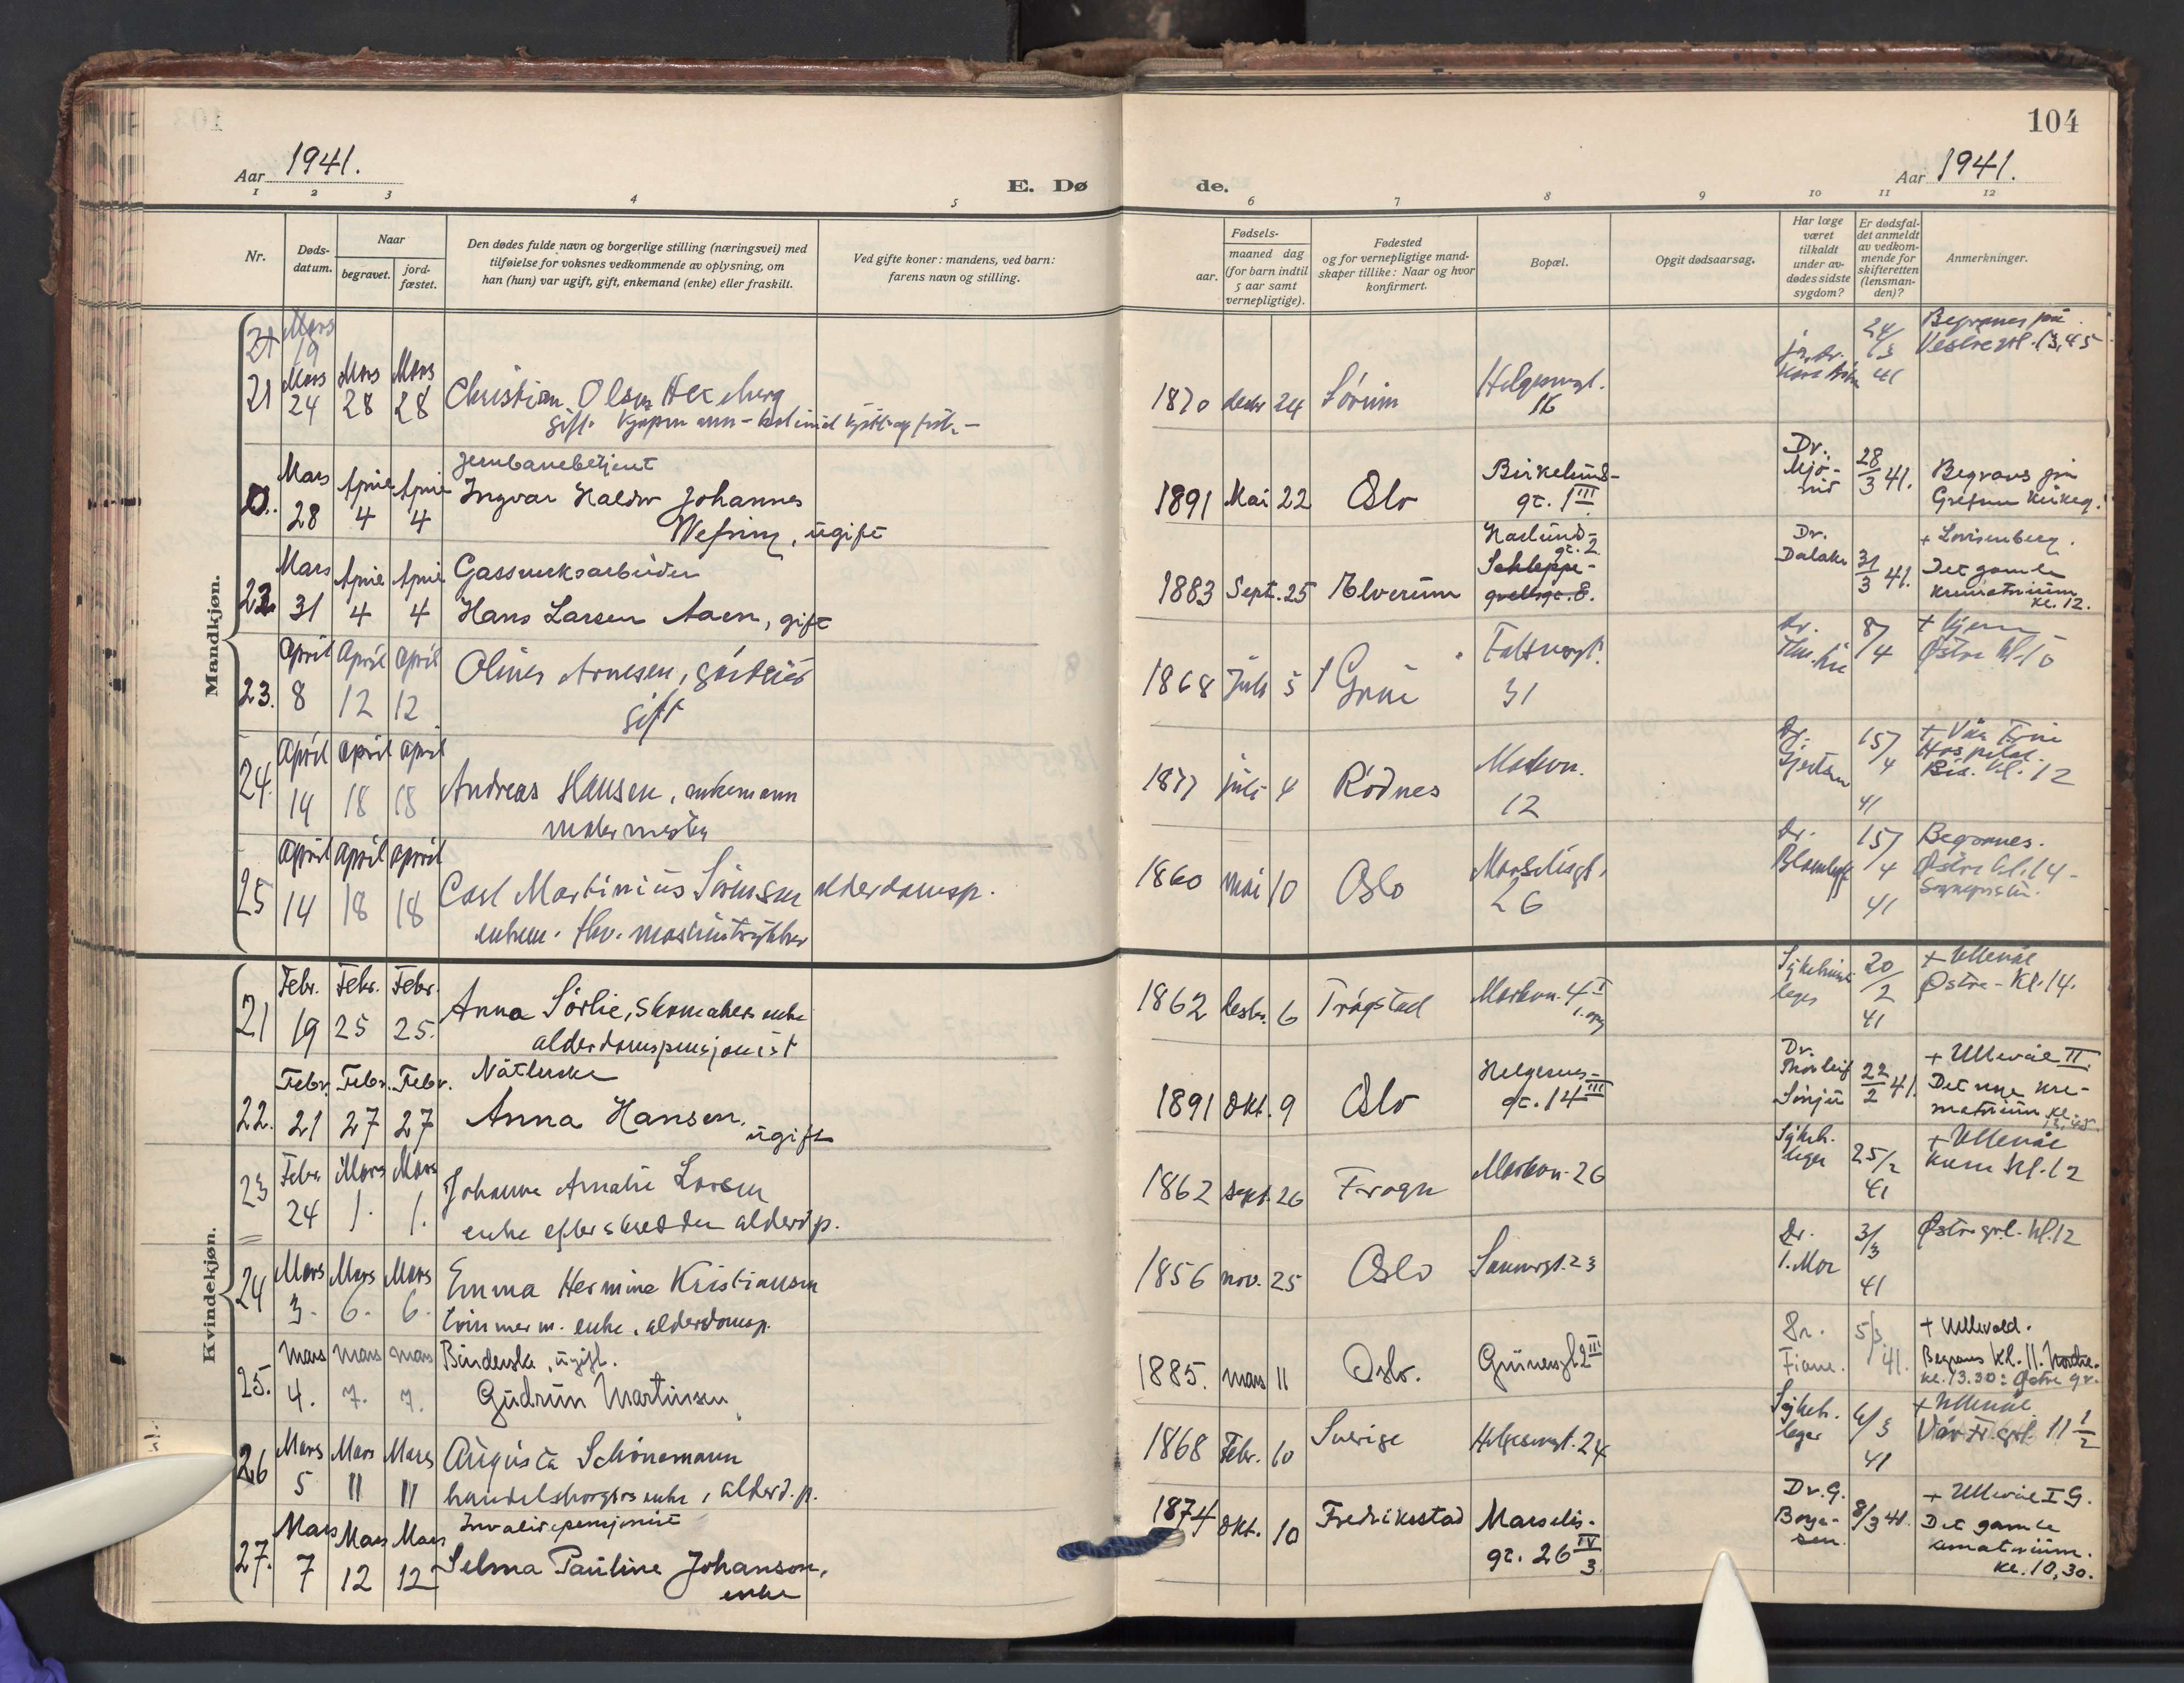 104
Aar 1941.
E. Dø
de.
Aar 1941.
1 2 3 4 5
6 7 8 9 10 11 12
Nr.
Døds-
datum.
Naar
begravet.
jord-
fæstet.
Den dødes fulde navn og borgerlige stilling (næringsvei) med
tilføielse for voksnes vedkommende av oplysning, om
han (hun) var ugift, gift, enkemand (enke) eller fraskilt.
Ved gifte koner: mandens, ved barn:
farens navn og stilling.
Fødsels-
aar.
maaned dag
(for barn indtil
5 aar samt
vernepligtige).
Fødested
og for vernepligtige mand-
skaper tillike: Naar og hvor
konfirmert.
Bopæl.
Opgit dødsaarsag.
Har læge
været
tilkaldt
under av-
dødes sidste
sygdom?
Er dødsfal-
det anmeldt
av vedkom-
mende for
skifteretten
(lensman-
den)?
Anmerkninger.
Mandkjøn.
Mars
19
21 Mars 24 Mars 28 Mars 28
Christian Olsen
gift.
1870 24 Sørum
16
24/3 41
Vestre 13,45
Mars 28 April 4 April 4
Jernbanebetjent
Ingvar Haldor Johannes
ugift
1891 Mai 22 Oslo
Birkelund-
gt. 1 III
Dr.
28/3 41.
Begraves
Grefsen kirkeg.
22 Mars 31 April 4 April 4
Gassverksarbeider
Hans Larsen Aaen, gift
1883 Sept. 25 Elverum
gt. 2
Schleppe-
grellsgt. 8.
Dr.
31/3 41.
+ Lovisenberg.
Det gamle
krematorium
kl. 12.
23. April 8 April 12 April 12
Arnesen,
gift
1868 Juli 5 Grue
31
Dr.
8/4
+ hjem
Østre kl. 10
24. April 14 April 18 April 18
Andreas Hansen, enkemann
malermester
1877 juli 4 Rødnes
Markvn.
12
Dr.
15/4 41
+ Vår Frue
Hospital.
kl. 12
25 April 14 April 18 April 18
Carl Martinius Sørensen alderdomsp.
enkem. fhv. maskintrykker
1860 mai 10 Oslo
Marselisgt.
26
Dr.
15/4 41
Begraves.
Østre kl. 14-
Kvindekjøn.
21 Febr. 19 Febr. 25 Febr. 25.
Anna Sørlie, skomakers enke
alderdomspensjonist
1862 desbr. 6 Trøgstad
Markvn. 4 I
Sykehus
leger
20/2 41
+ Ullevål
Østre - Kl. 14.
22. Febr. 21 Febr. 27 Febr. 27
Nåtlerske
Anna Hansen,
ugift
1891 Okt. 9 Oslo
Helgesens-
gt. 14 III
Dr.
Thorleif
22/2 41.
+ Ullevål II
Det nye kre-
matorium kl.
13,45.
23 Febr. 24 Mars 1. Mars 1.
Johanne Amalie Larsen
enke efter skredder alderd p.
1862 sept. 26 Frogn
Markvn. 26
Sykeh.
leger
25/2 41
+ Ullevål
krem kl. 12
24 Mars 3. Mars 6. Mars 6.
Emma Hermine Kristiansen
tømmerm. enke, alderdomsp.
1856 nov. 25 Oslo
Sannergt. 23
Dr.
3/3 41
Østre grl. kl. 12
25. Mars 4. Mars 7. Mars 7.
Binderske, ugift.
Gudrun Martinsen
1885. Mars 11 Oslo.
Grünersgt 2 III
Dr.
5/3 41.
+ Ullevold.
Begraves Kl. 11.
kl. 13.30: Østre gr.
26 Mars 5 Mars 11 Mars 11
Augusta Schönemann
handelsborgers enke, alderd. p.
1868 Febr. 10 Sverige
Helgesensgt. 24
Sykeh.
leger
6/3 41
+ Ullevål
Vår Fr. grl. 11 1/2
27. Mars 7 Mars 12 Mars 12
Invalidepensjonist
Selma Pauline Johanson,
enke
1874 Okt. 10 Fredrikstad
Marselis-
gt. 26 IV
3.
Dr. G.
Borge-
sen.
8/3 41.
+ Ullevål I G.
Det gamle
krematorium.
kl. 10,30.